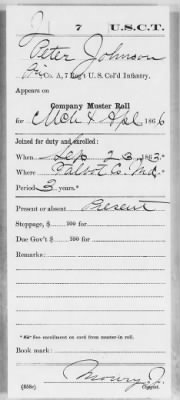 7 U.S.C.T.
Peter Johnson
Co. A, 7 Reg't U. S. Col'd Infantry.
Appears on
Company Muster Roll
for Mch & Apl, 1866
Joined for duty and enrolled:
When Sep 23, 1863.*
Where Talbot Co. Md.
Period 3 years.*
Present or absent Present
Stoppage, $ 100 for
Due Gov't $ 100 for
Remarks:
* See enrollment on card from muster-in roll.
Book mark:
(858c) Copyist.